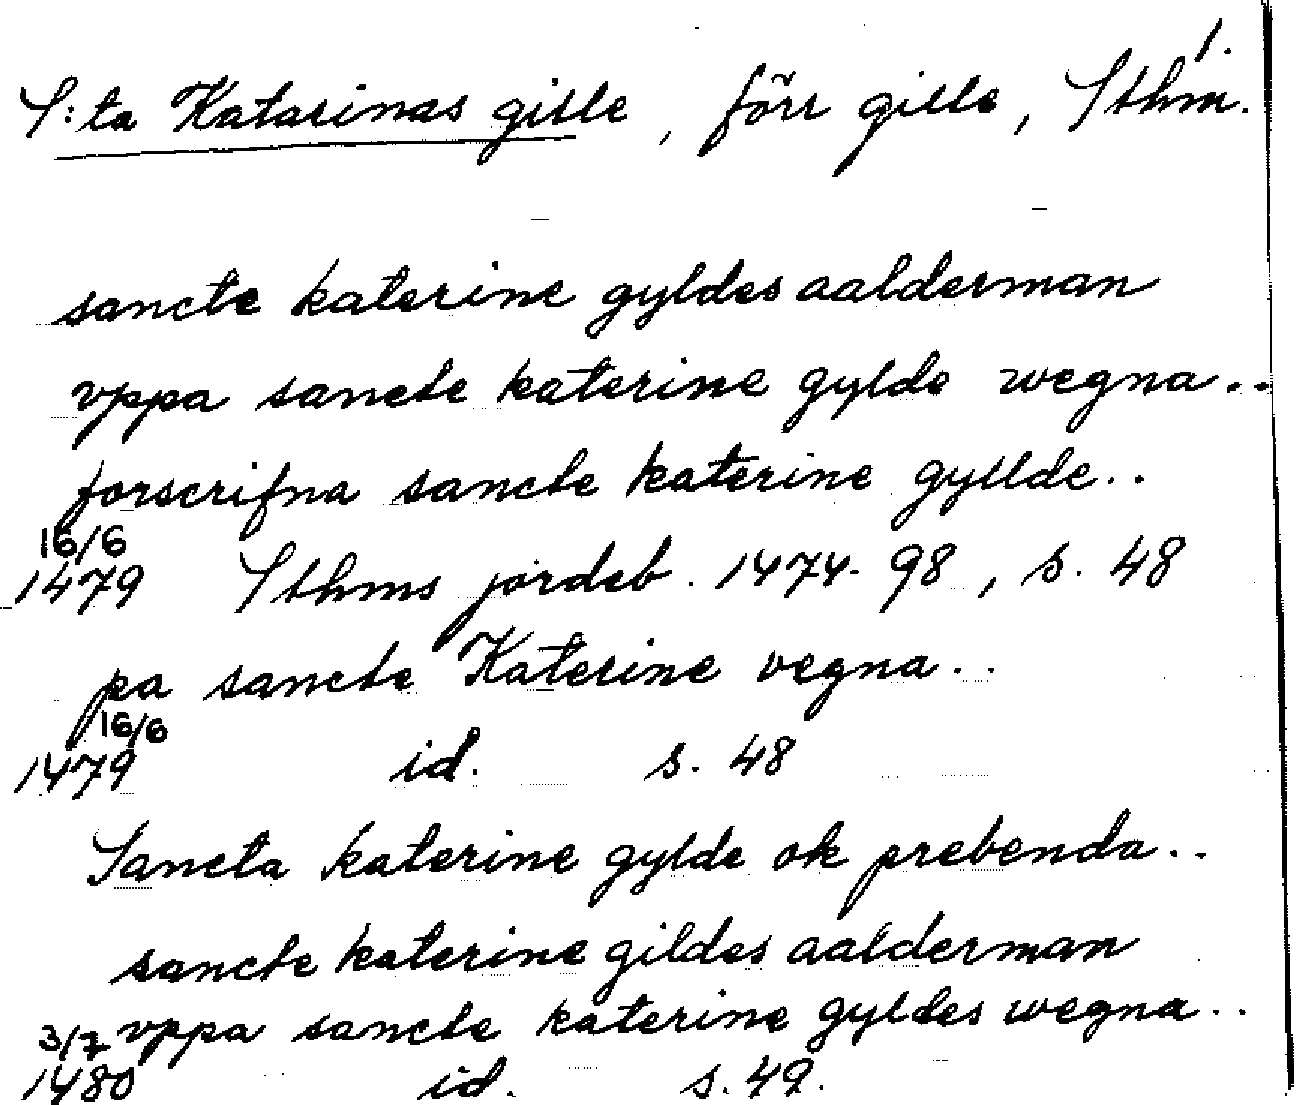 1.
S:ta Katarinas gille, förr gille, Sthm.
sancte katerine gyldes aalderman
vppa sancte katerine gylde wegna..
forscrifna sancte katerine gyllde..
16/6
1479 Sthms jordeb. 1474-98, s. 48
pa sancte Katerine vegna..
16/6
1479 id. s. 48
Sancta katerine gylde ok prebenda..
sancte katerine gildes aalderman
3/7 vppa sancte katerine gyldes wegna..
1480 id. s. 49.